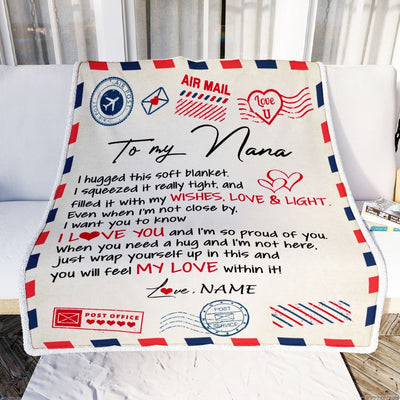 AIR MAIL
AIR POST
Love
U
To my Nana
I hugged this soft blanket.
I squeezed it really tight, and
filled it with my WISHES, LOVE & LIGHT.
Even when I'm not close by.
I want you to know
I LOVE YOU and I'm so proud of you.
When you need a hug and I'm not here,
just wrap yourself up in this and
you will feel MY LOVE within it!
Love, NAME
POST OFFICE
POST
SERVICE